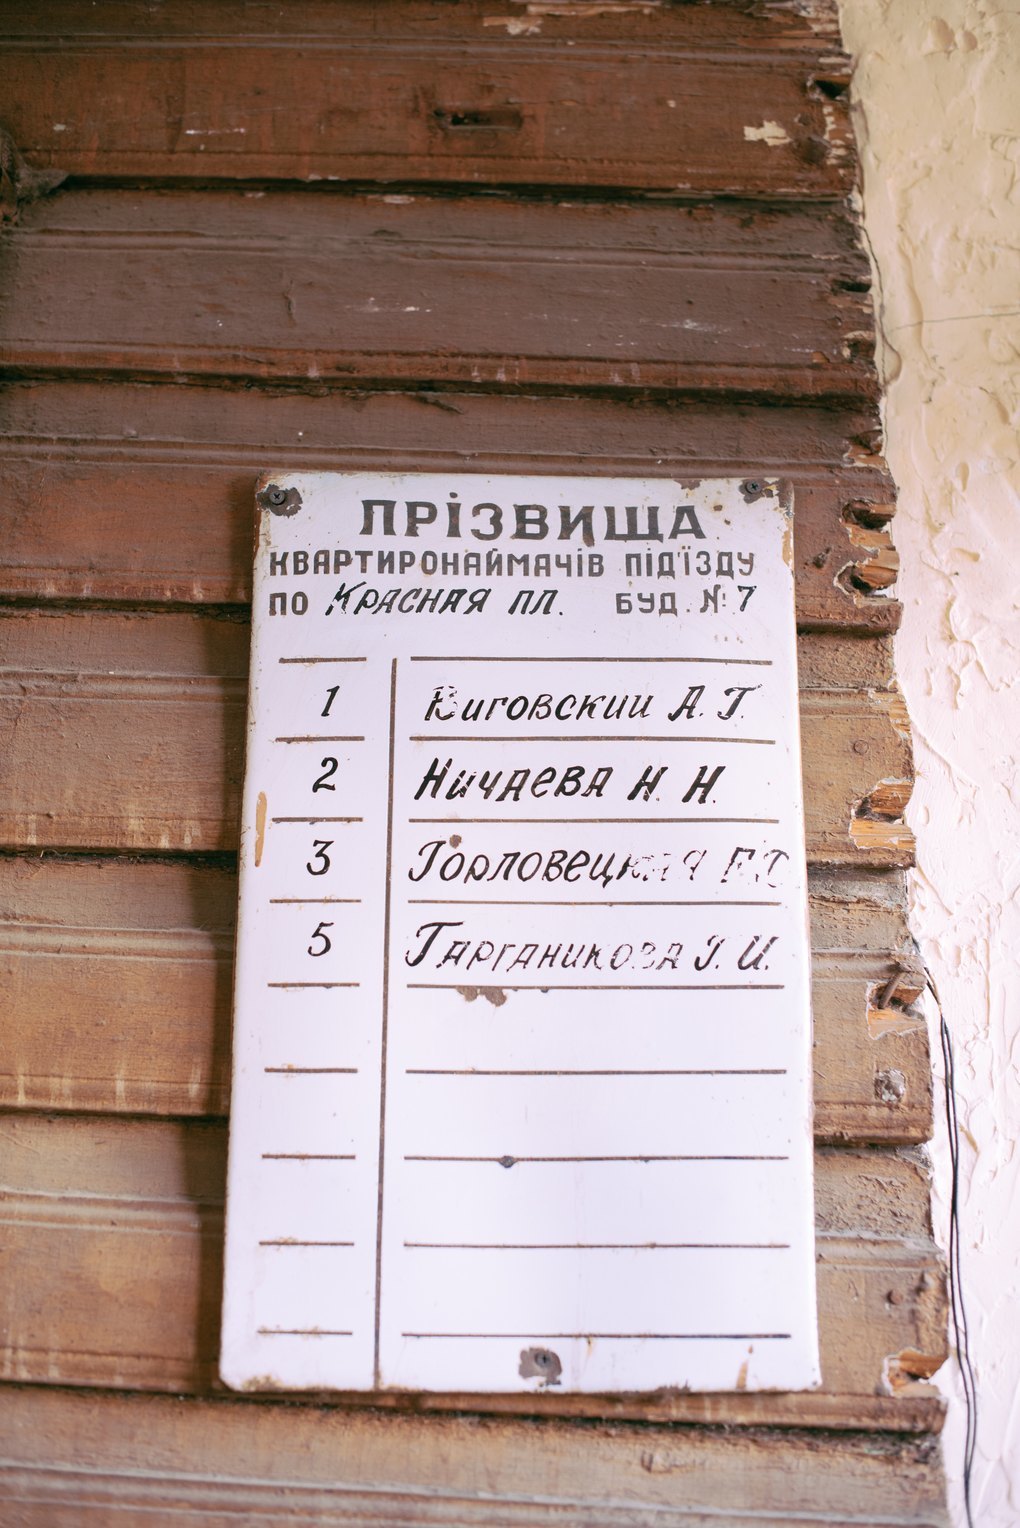 ПРІЗВИЩА
КВАРТИРОНАЙМАЧІВ ПІД'ЇЗДУ
ПО КРАСНАЯ ПЛ. БУД. № 7
1 Виговский А. Г.
2 Ничаева Н. Н.
3 Горловецкая
5 Тарганикова Г. И.